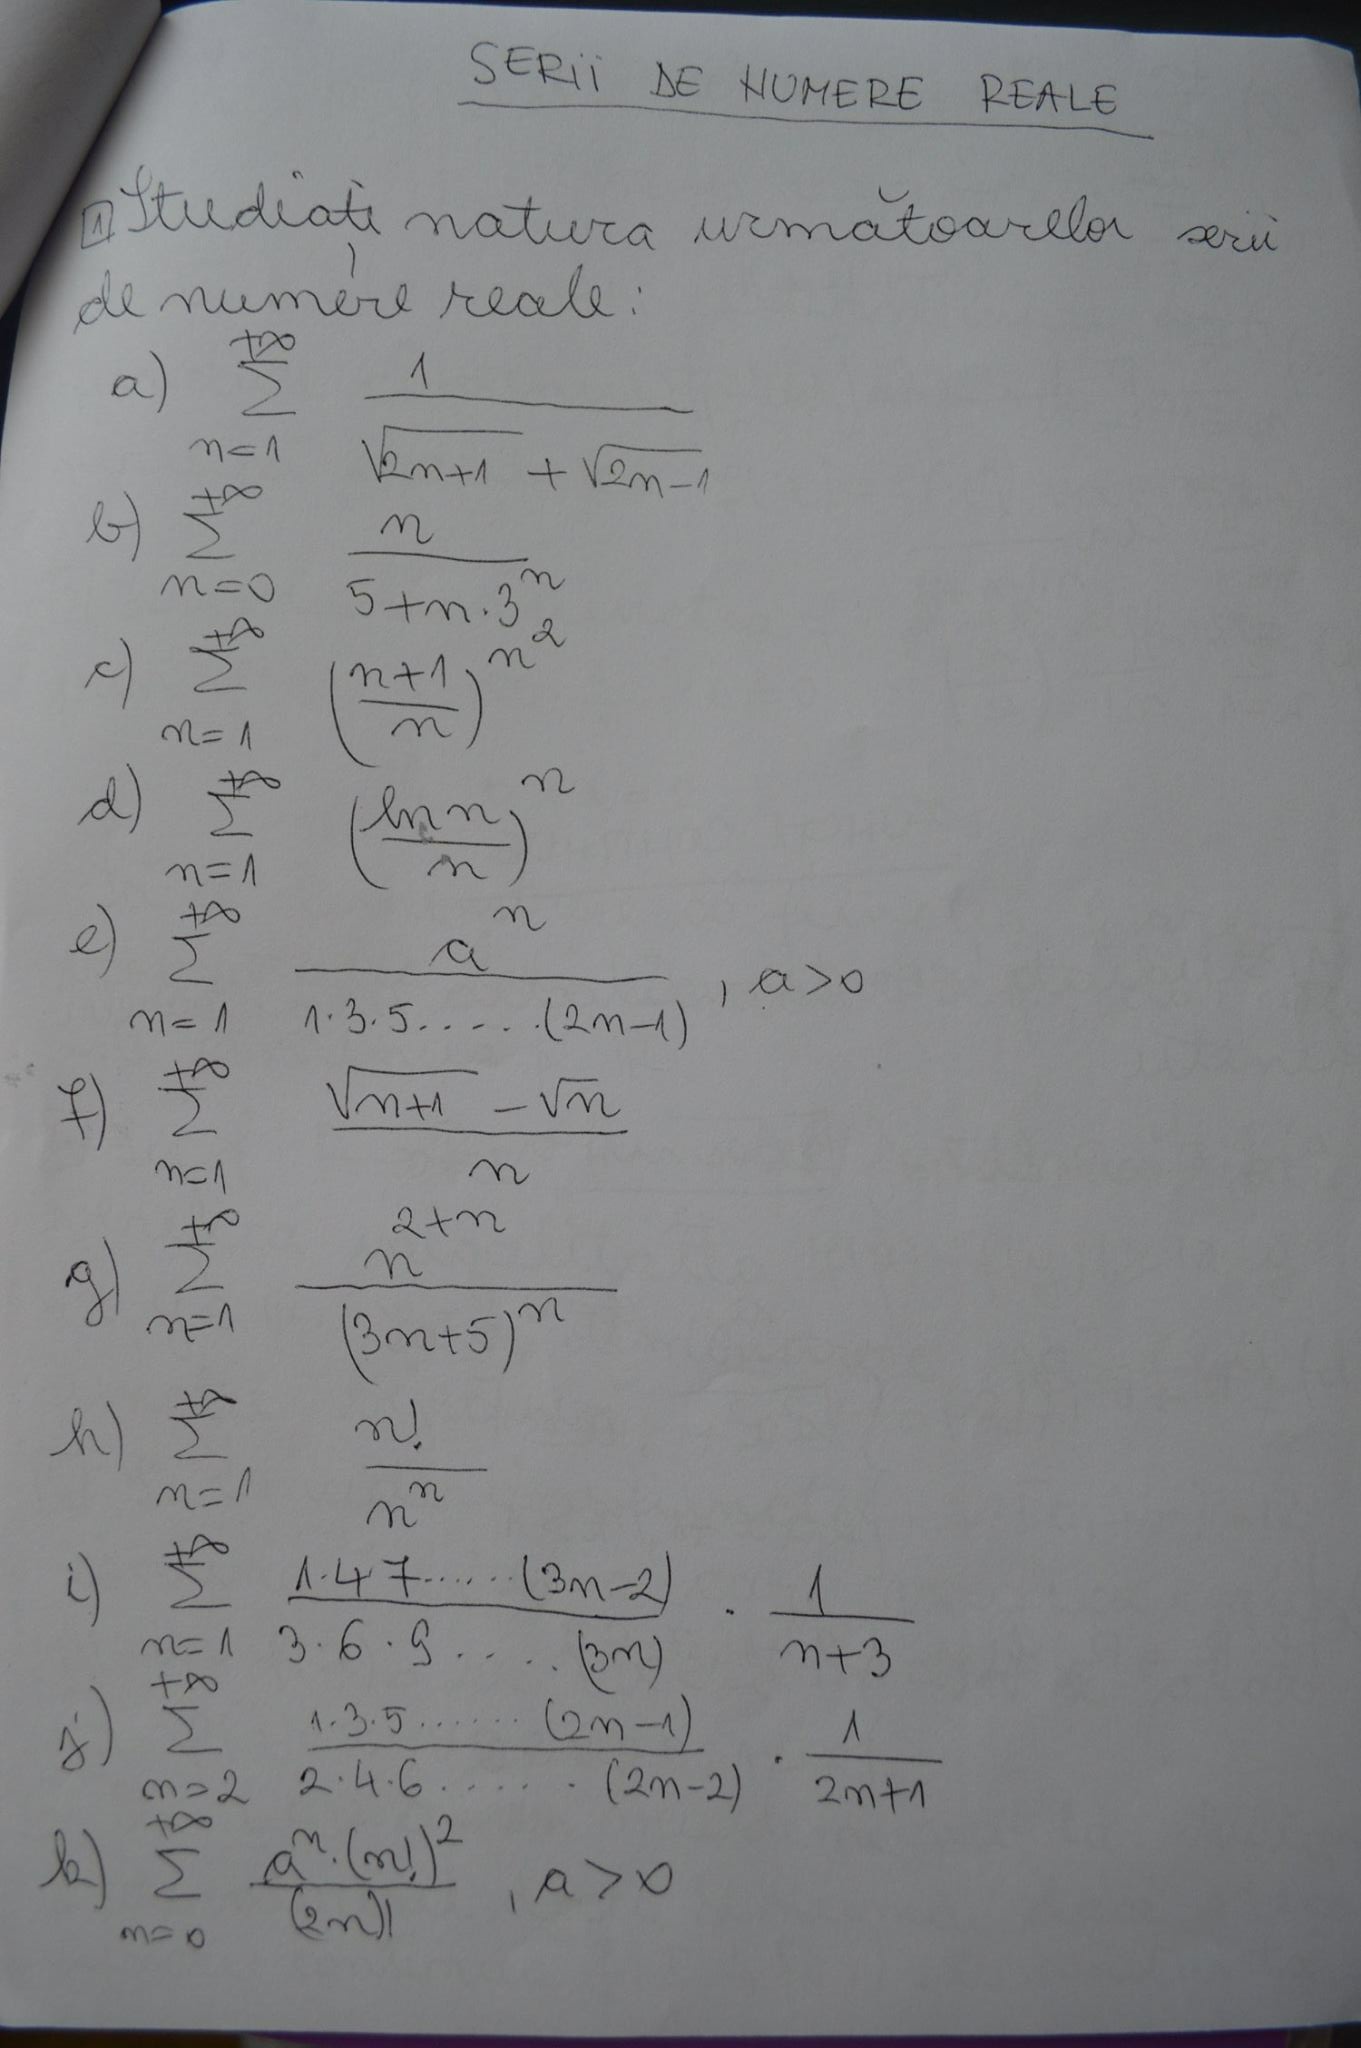 SERII DE NUMERE REALE
1 Studiați natura următoarelor serii
de numere reale:
a) \sum_{n=1}^{+∞} \frac{1}{\sqrt{2n+1} + \sqrt{2n-1}}
b) \sum_{n=0}^{+∞} \frac{n}{5+n·3^n}
c) \sum_{n=1}^{+∞} (\frac{n+1}{n})^{n^2}
d) \sum_{n=1}^{+∞} (\frac{ln n}{n})^n
e) \sum_{n=1}^{+∞} \frac{a^n}{1·3·5.....·(2n-1)}, a>0
f) \sum_{n=1}^{+∞} \frac{\sqrt{n+1} - \sqrt{n}}{n}
g) \sum_{n=1}^{+∞} \frac{n^{2+n}}{(3n+5)^n}
h) \sum_{n=1}^{+∞} \frac{n!}{n^n}
i) \sum_{n=1}^{+∞} \frac{1·4·7......(3n-2)}{3·6·9.....(3n)} · \frac{1}{n+3}
j) \sum_{n=2}^{+∞} \frac{1·3·5......(2n-1)}{2·4·6......(2n-2)} · \frac{1}{2n+1}
k) \sum_{n=0}^{+∞} \frac{a^n·(n!)^2}{(2n)!}, a>0